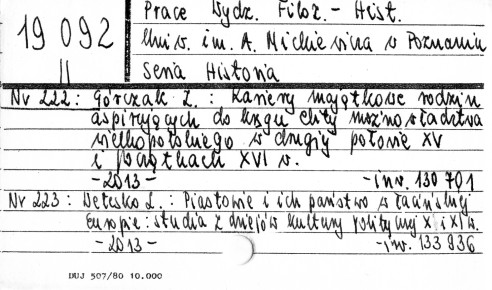 19 092
II
Prace Wydz. Filoz.- Hist.
Univ. im. A. Mickiewicza w Poznaniu
Seria Historia
Nr 222: Górczak Z.: Kariery majątkowe rodzin
aspirujących do kręgu elity możnowładztwa
wielkopolskiego w drugiej połowie XV
i początkach XVI w.
-2013- -inw. 130 701
Nr 223: Wetesko L.: Piastowie i ich państwo w łacińskiej
Europie: studia z dziejów kultury politycznej X i XI w.
-2013- -inw. 133 936
DUJ 507/80 10.000